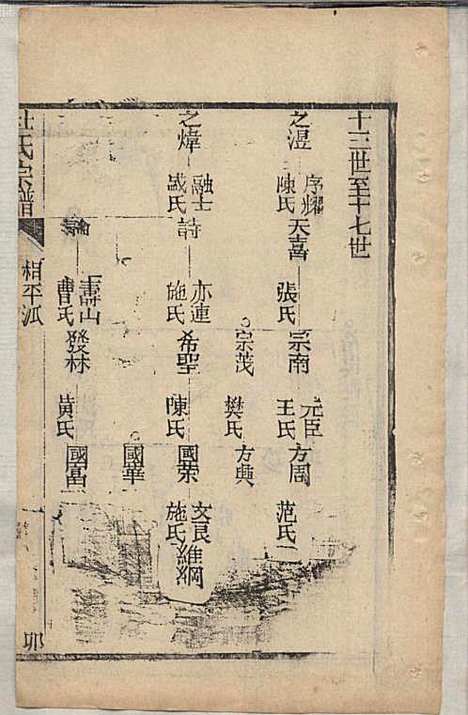 十三世至十七世
之湜 序耀 陳氏 天喜 張氏 宗南 元臣 王氏 方周 范氏
宗茂 樊氏 方興
之煒 融士 戚氏 詩 亦連 施氏 希聖 陳氏 國荣 文良 施氏 維綱
國華
論 壽山 曹氏 發林 黃氏 國富
杜氏宗譜 相平派